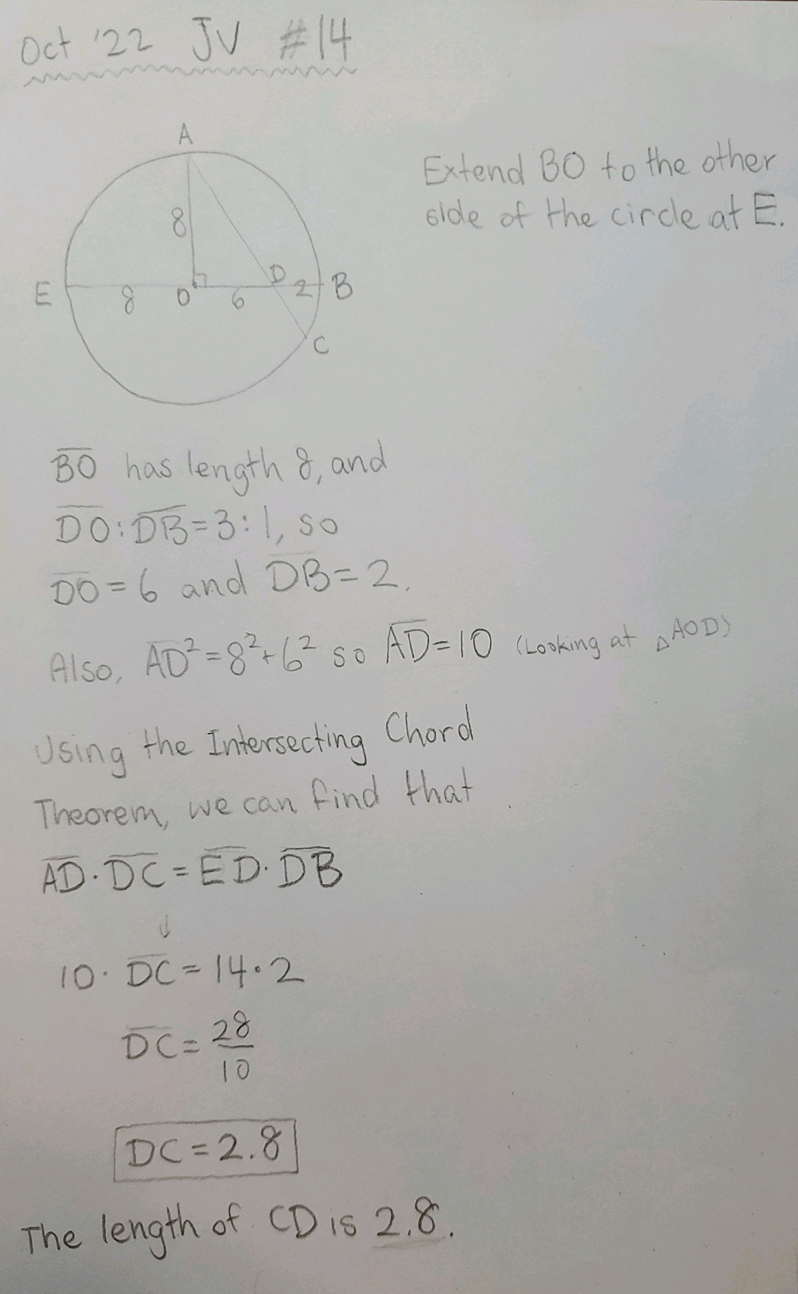 Oct '22 JV #14
A
Extend BO to the other
side of the circle at E.
8
E 8 O 6 D 2 B
C
B̅O̅ has length 8, and
D̅O̅:D̅B̅=3:1, so
D̅O̅=6 and D̅B̅=2.
Also, A̅D̅²=8²+6² so A̅D̅=10 (Looking at △AOD)
Using the Intersecting Chord
Theorem, we can find that
A̅D̅·D̅C̅=E̅D̅·D̅B̅
↓
10·D̅C̅=14·2
D̅C̅=28/10
DC=2.8
The length of CD is 2.8.